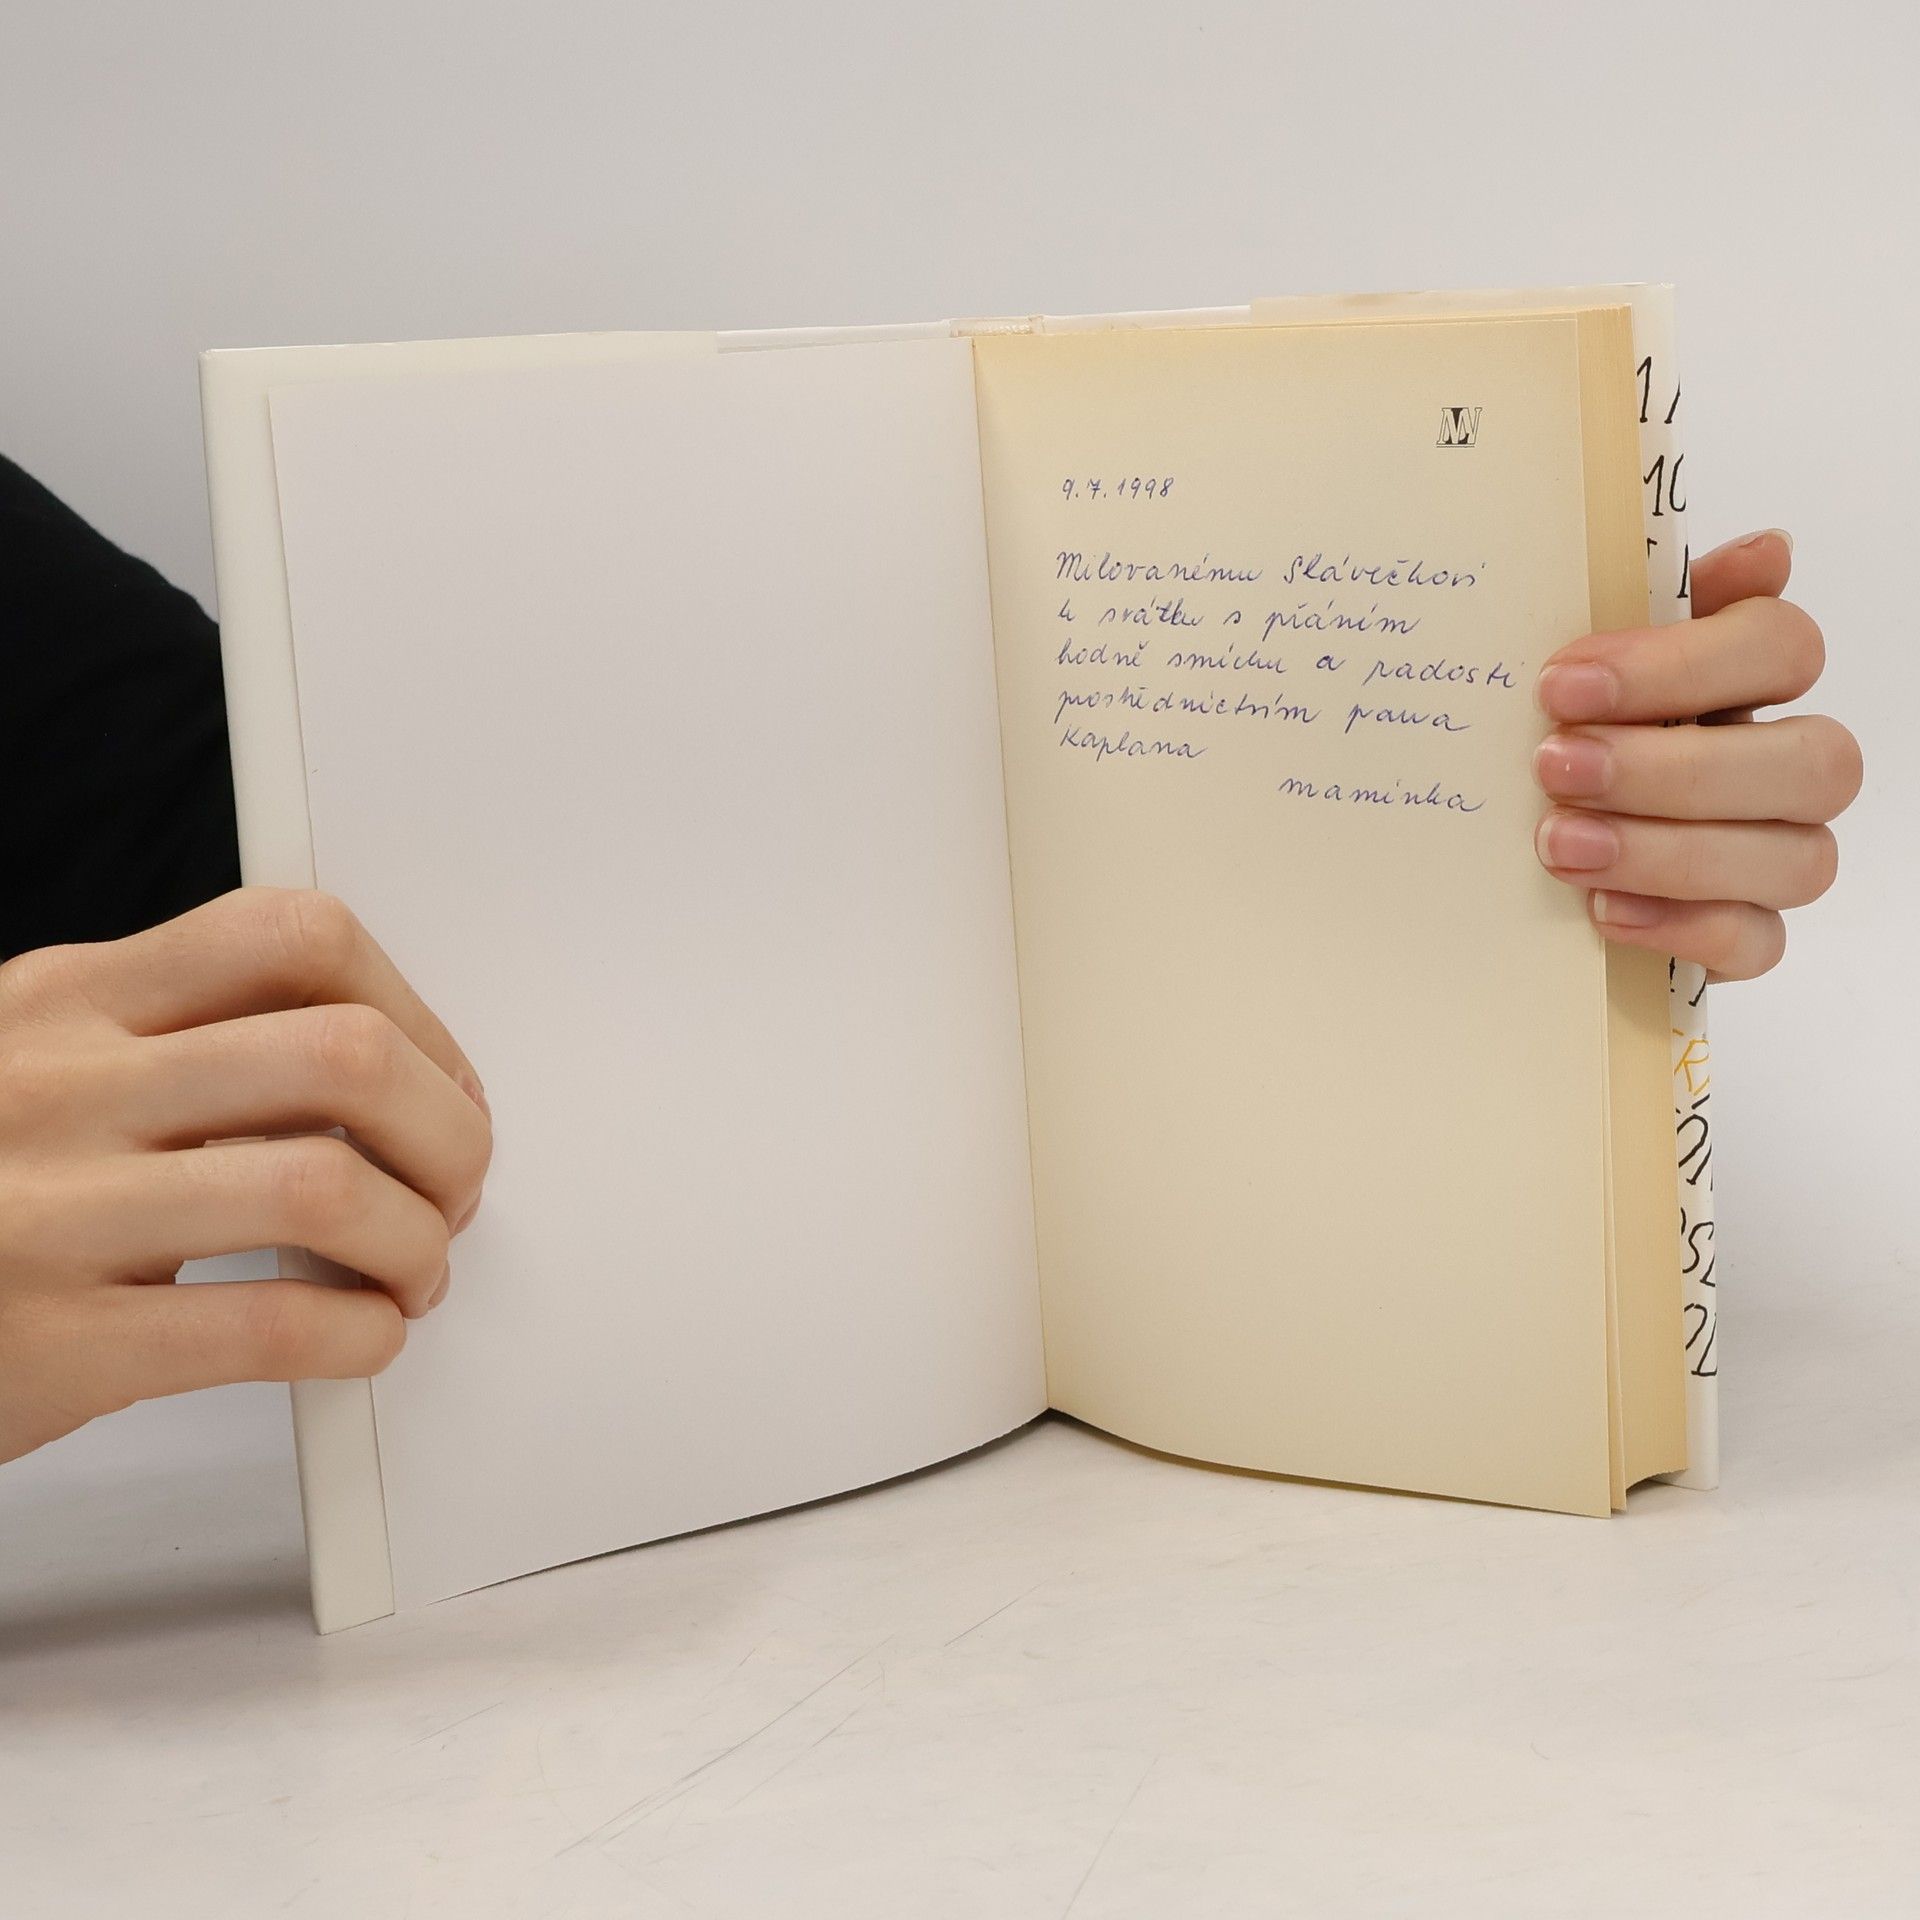 9.7.1998
Milovanému Slávečkovi
k svátku s přáním
hodně smíchu a radosti
prostřednictvím pana
Kaplana
maminka